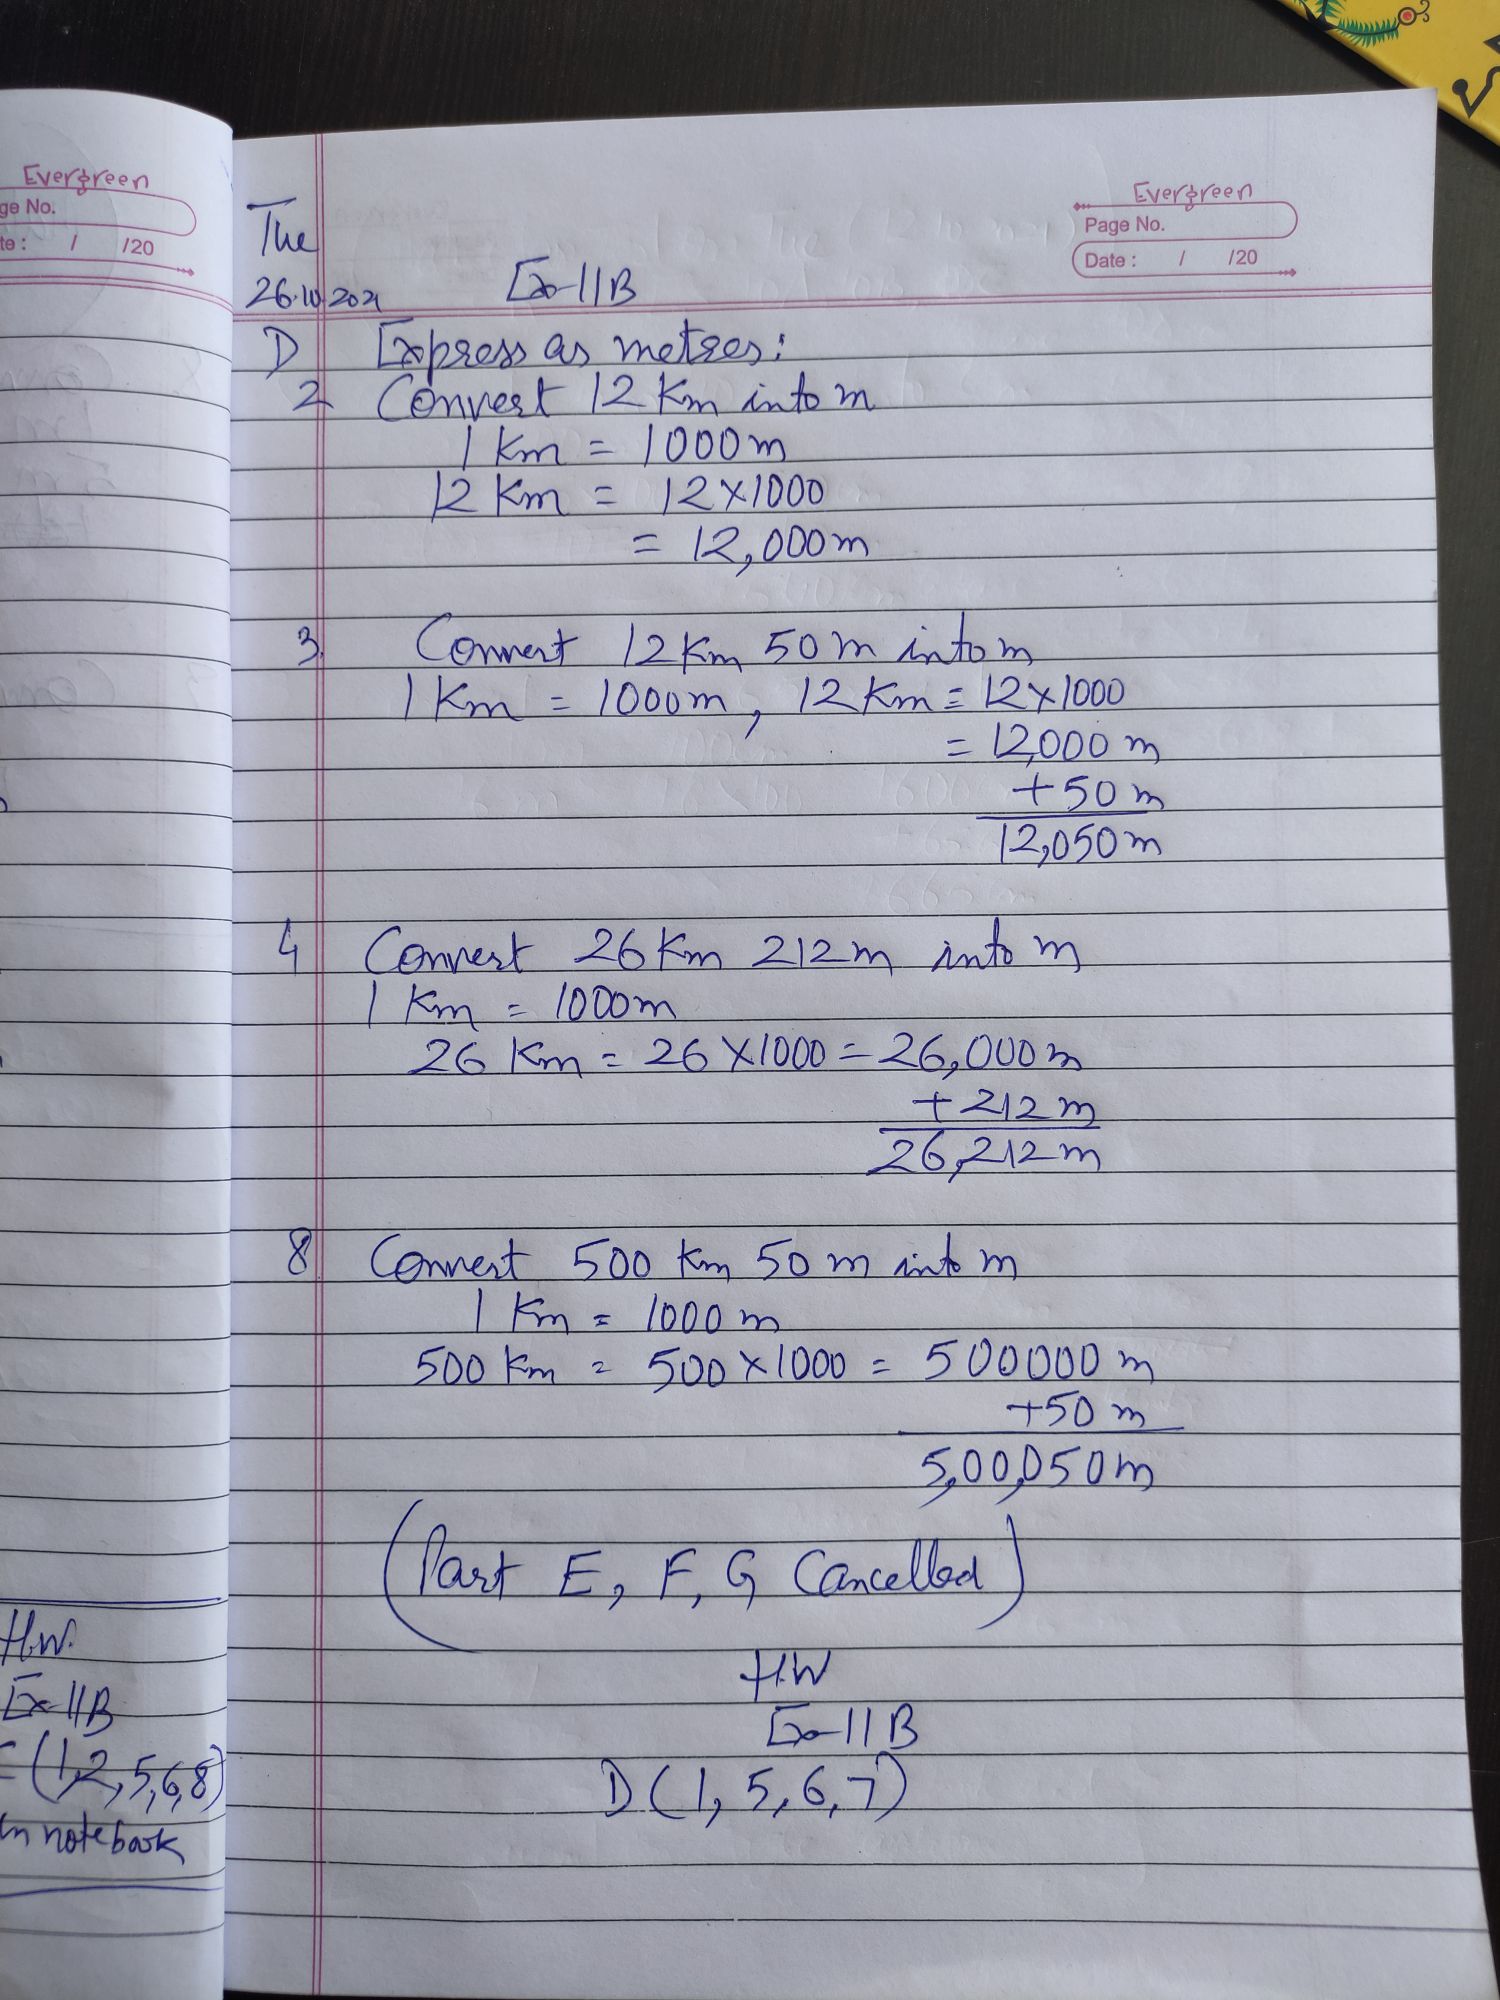 Evergreen
ge No.
te : / /20
H.W.
Ex-11B
(1,2,5,6,8)
In notebook
Evergreen
Page No.
Date : / /20
The
26.10.2021
Ex-11B
D Express as metres:
2 Convert 12 Km into m
1 Km = 1000m
12 Km = 12×1000
= 12,000m
3. Convert 12Km 50m into m
1 Km = 1000m, 12 Km = 12×1000
= 12,000 m
+50 m
12,050m
4 Convert 26 Km 212m into m
1 Km = 1000m
26 Km = 26 ×1000 = 26,000m
+212 m
26,212m
8 Convert 500 Km 50 m into m
1 Km = 1000 m
500 Km = 500×1000 = 500000 m
+50 m
5,00,050m
(Part E, F, G Cancelled)
H.W
Ex-11B
D (1, 5, 6, 7)